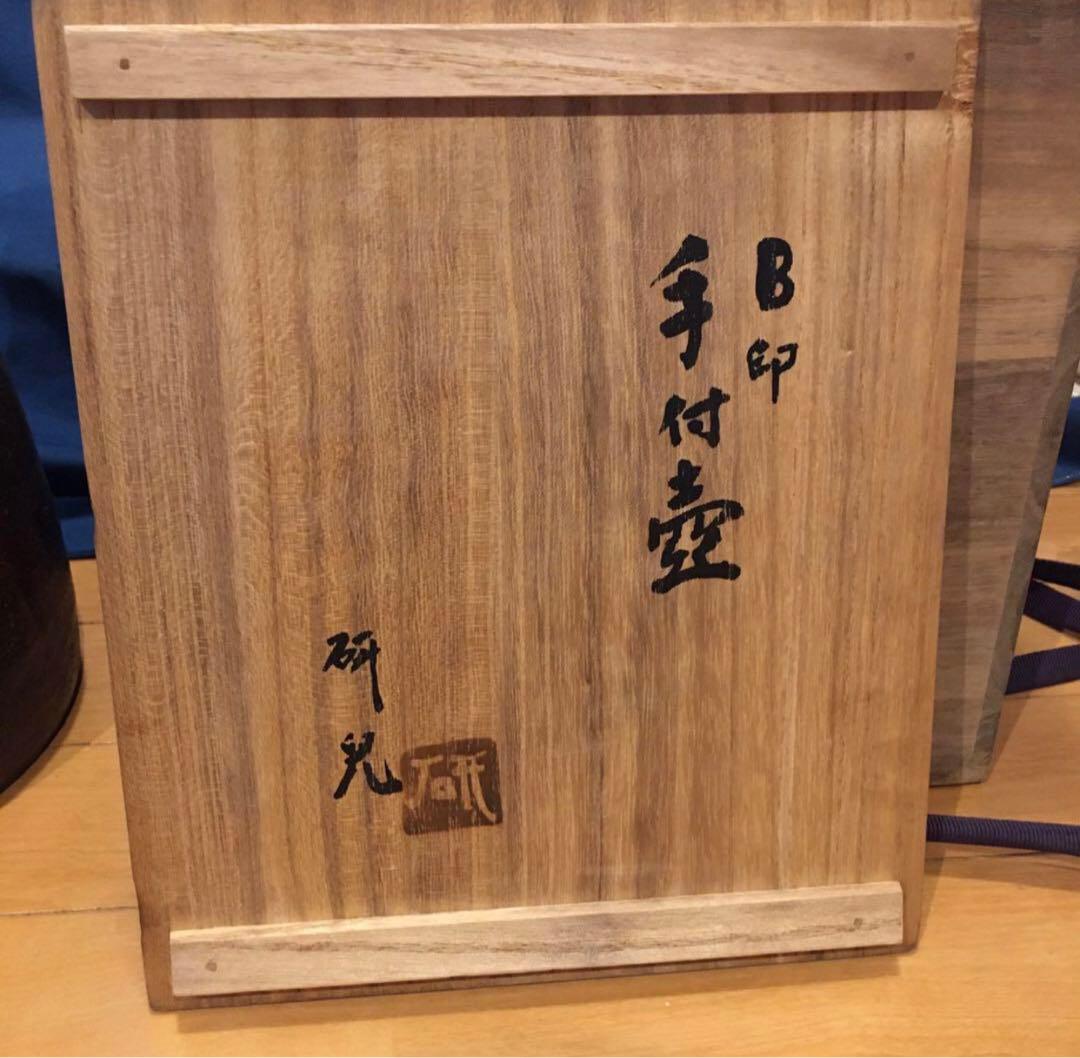 B印
手付壺
研児
研